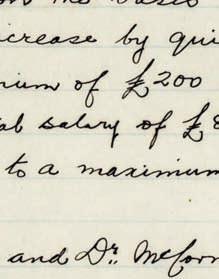 on the basis
crease by qui
nium of £200
al salary of £8
to a maximum
and Dr. McCorn